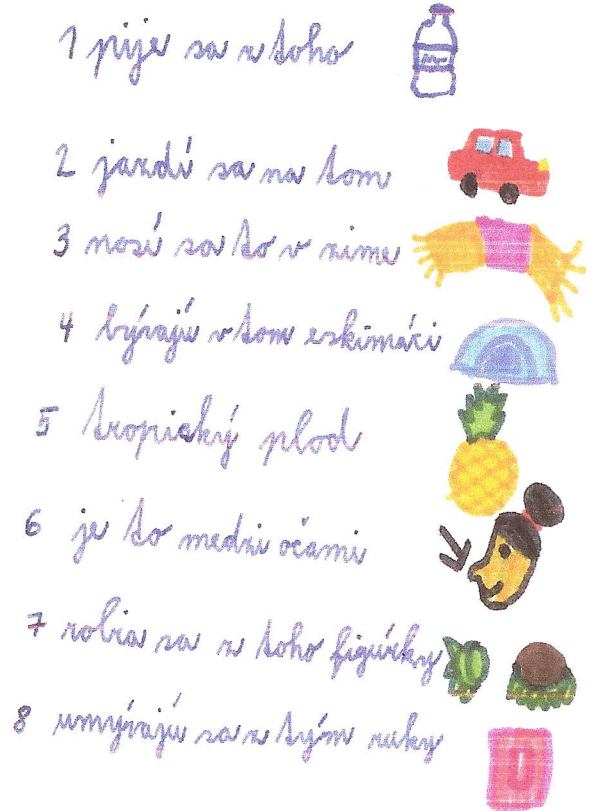 1 pije sa z toho
2 jazdí sa na tom
3 nosí sa to v zime
4 bývajú v tom eskimáci
5 tropický plod
6 je to medzi očami
7 robia sa z toho figúrky
8 umývajú sa z tým ruky